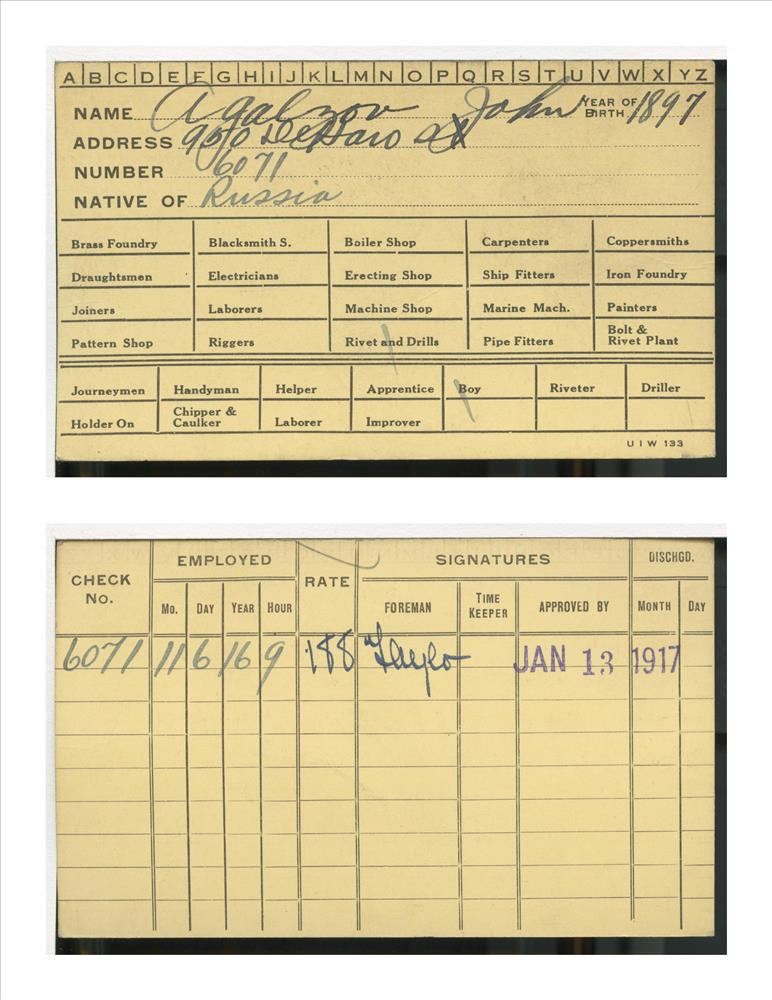 A B C D E F G H I J K L M N O P Q R S T U V W X Y Z
NAME Agalzov John YEAR OF BIRTH 1897
ADDRESS DeHaro st
NUMBER 6071
NATIVE OF Russia
Brass Foundry Blacksmith S. Boiler Shop Carpenters Coppersmiths
Draughtsmen Electricians Erecting Shop Ship Fitters Iron Foundry
Joiners Laborers Machine Shop Marine Mach. Painters
Pattern Shop Riggers Rivet and Drills Pipe Fitters Bolt & Rivet Plant
Journeymen Handyman Helper Apprentice Boy Riveter Driller
Holder On Chipper & Caulker Laborer Improver
U I W 133
EMPLOYED SIGNATURES DISCHGD.
CHECK No. RATE
MO. DAY YEAR HOUR FOREMAN TIME KEEPER APPROVED BY MONTH DAY
6071 11 6 16 9 188 JAN 13 1917